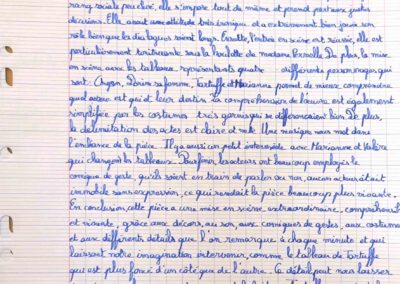 rang sociale peu élevé, elle s'impose tout de même et prend part aux quatre
décisions. Elle avait une attitude très ironique et a extrêmement bien joué son
rôle bien que les dialogues soient longs. Ensuite, l'entrée en scène est réussie, elle est
particulièrement tonitruante sous la houlette de madame Pernelle. De plus, la mise
en scène, avec les tableaux, représentants quatre différents personnages qui
sont : Orgon, Dorine sa femme, Tartuffe et Marianne, permet de mieux comprendre
quel acteur est qui et leur destin. La compréhension de l'œuvre est également
simplifiée par les costumes très garnis qui se différenciaient bien. De plus,
la délimitation des actes est claire et nette. Une musique nous met dans
l'embiance de la pièce. Il y a aussi un petit intermède avec Marianne et Valère
qui changent les tableaux. Parfois, les acteurs ont beaucoup employés le
comique de geste, qu'ils soient en train de parler ou non, aucun acteur était
immobile sans expression, ce qui rendait la pièce beaucoup plus vivante.
En conclusion, cette pièce a une mise en scène extraordinaire, compréhensible
et vivante, grâce aux décors, au son, aux comiques de gestes, aux costumes
et aux différents détails que l'on remarque à chaque minute et qui
laissent notre imagination intervenir, comme le tableau de Tartuffe
qui est plus foncé d'un côté que de l'autre. Ce détail peut nous laisser